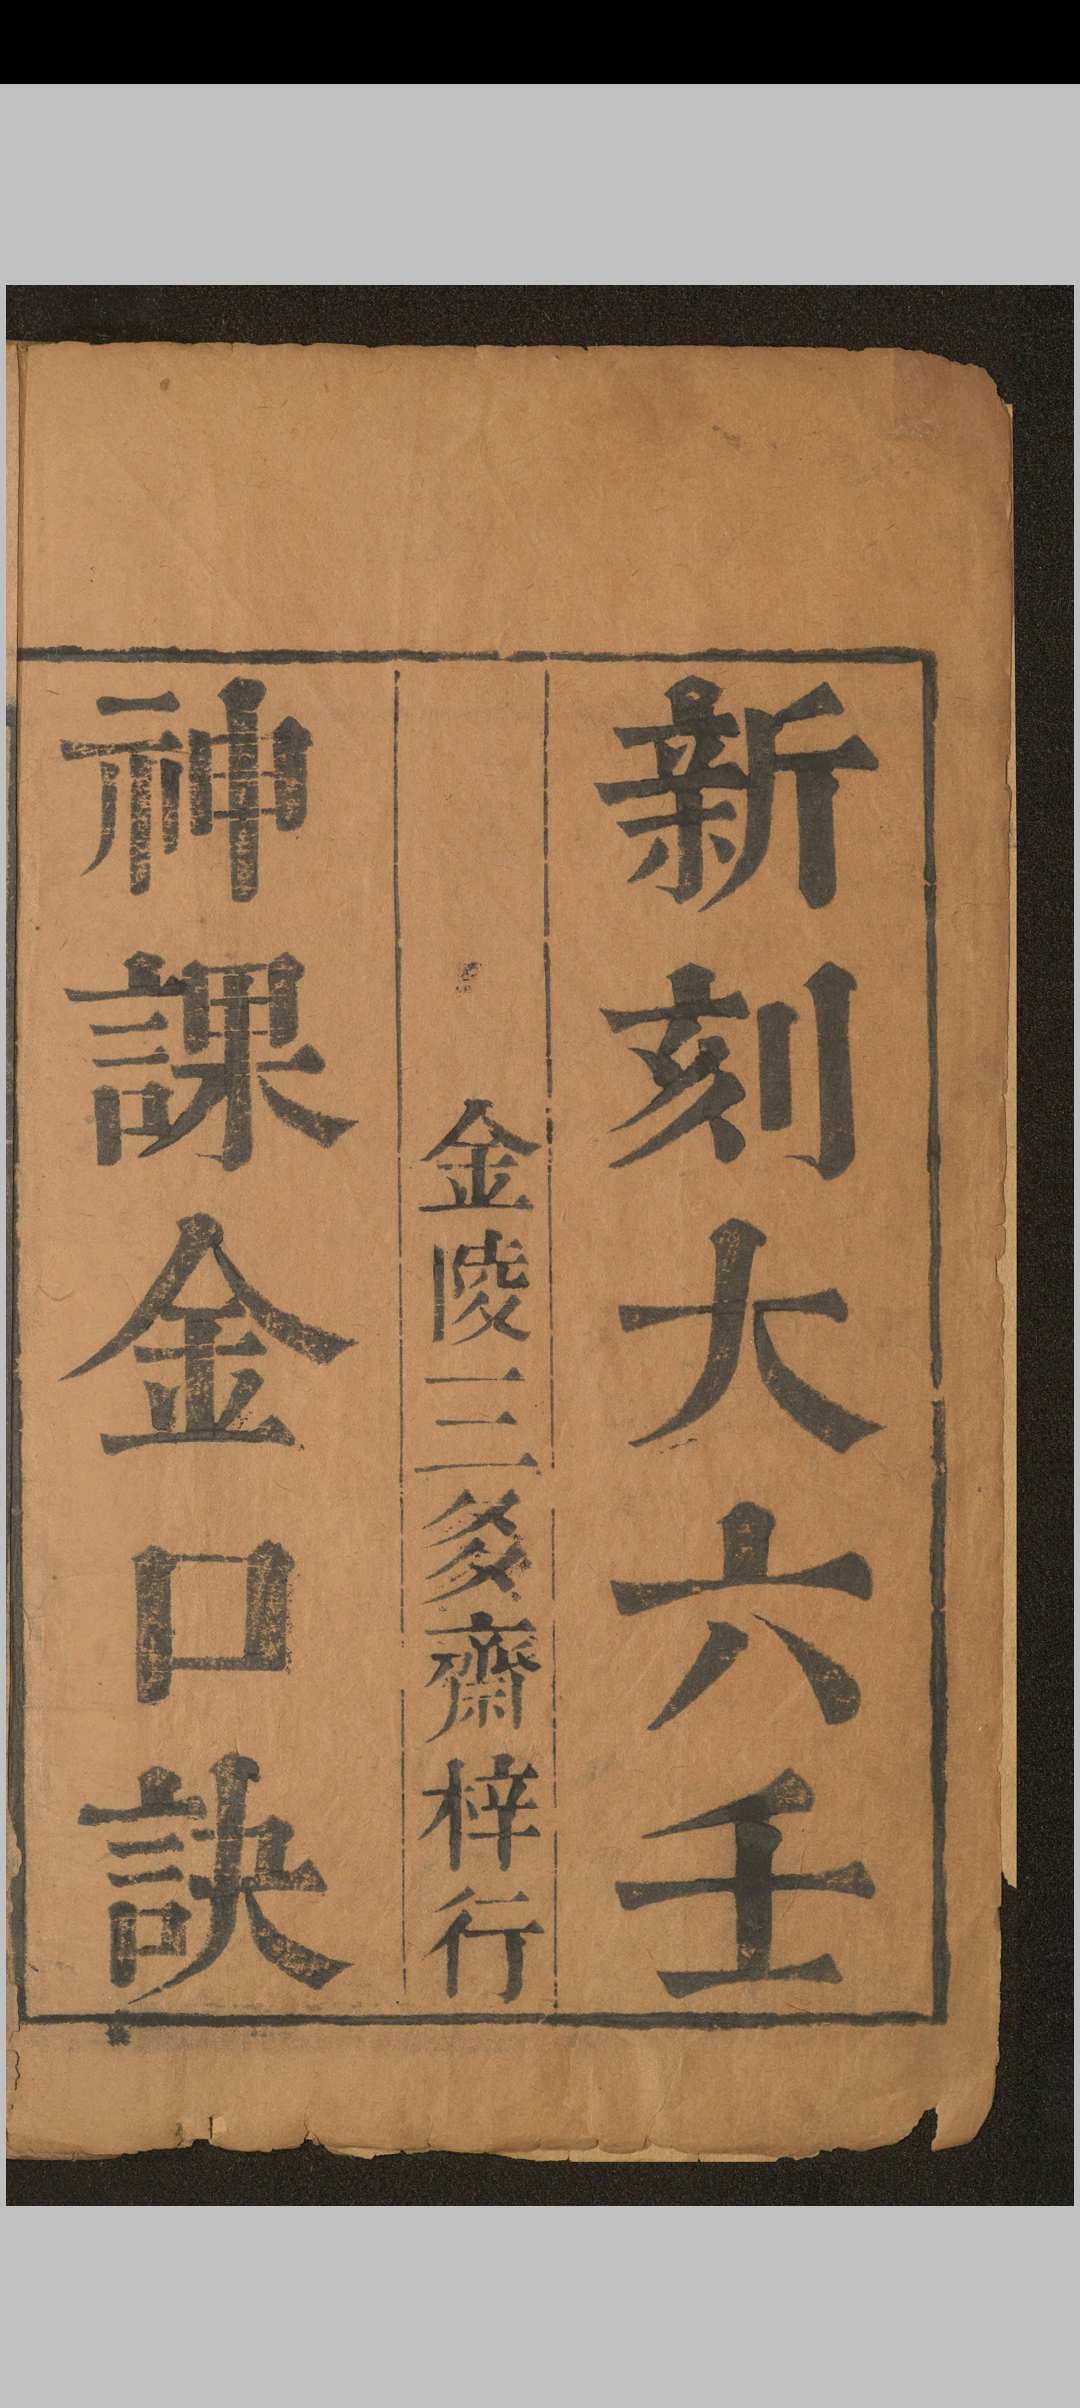 新刻大六壬
金陵三多齋梓行
神課金口訣